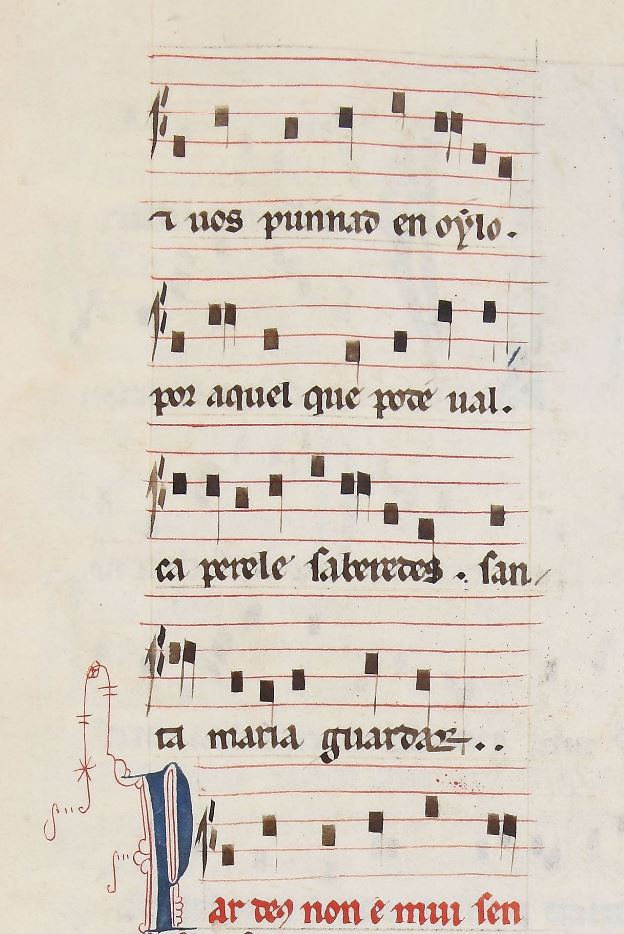 ⁊ uos punnad en oỳlo.
por aquel que pode ual.
ca perele saberedes. san
ta maria guardar..
Par deꝯ non e mui sen